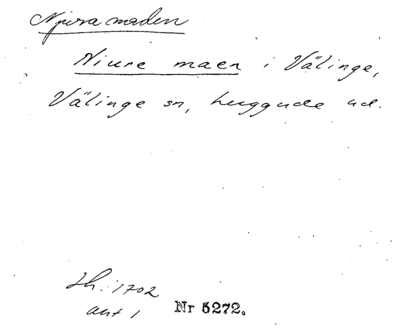 Njura maden
Niure maen i Välinge,
Välinge sn, Luggude hd.
Jh. 1702
akt 1 Nr 5272.